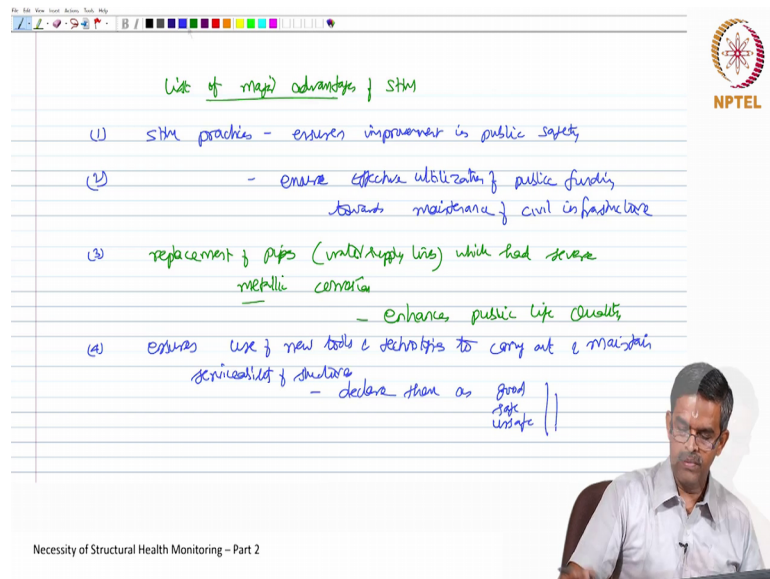 File Edit View Insert Actions Tools Help
NPTEL
List of major advantages of SHM
(1) SHM practices - ensures improvement in public safety
(2) - ensure effective utilization of public funding
towards maintenance of civil infrastructure
(3) replacement of pipes (water supply lines) which had severe
metallic corrosion
- enhances public life quality
(4) ensures use of new tools & technologies to carry out & maintain
serviceability of structure
- declare them as good
safe
unsafe
Necessity of Structural Health Monitoring – Part 2